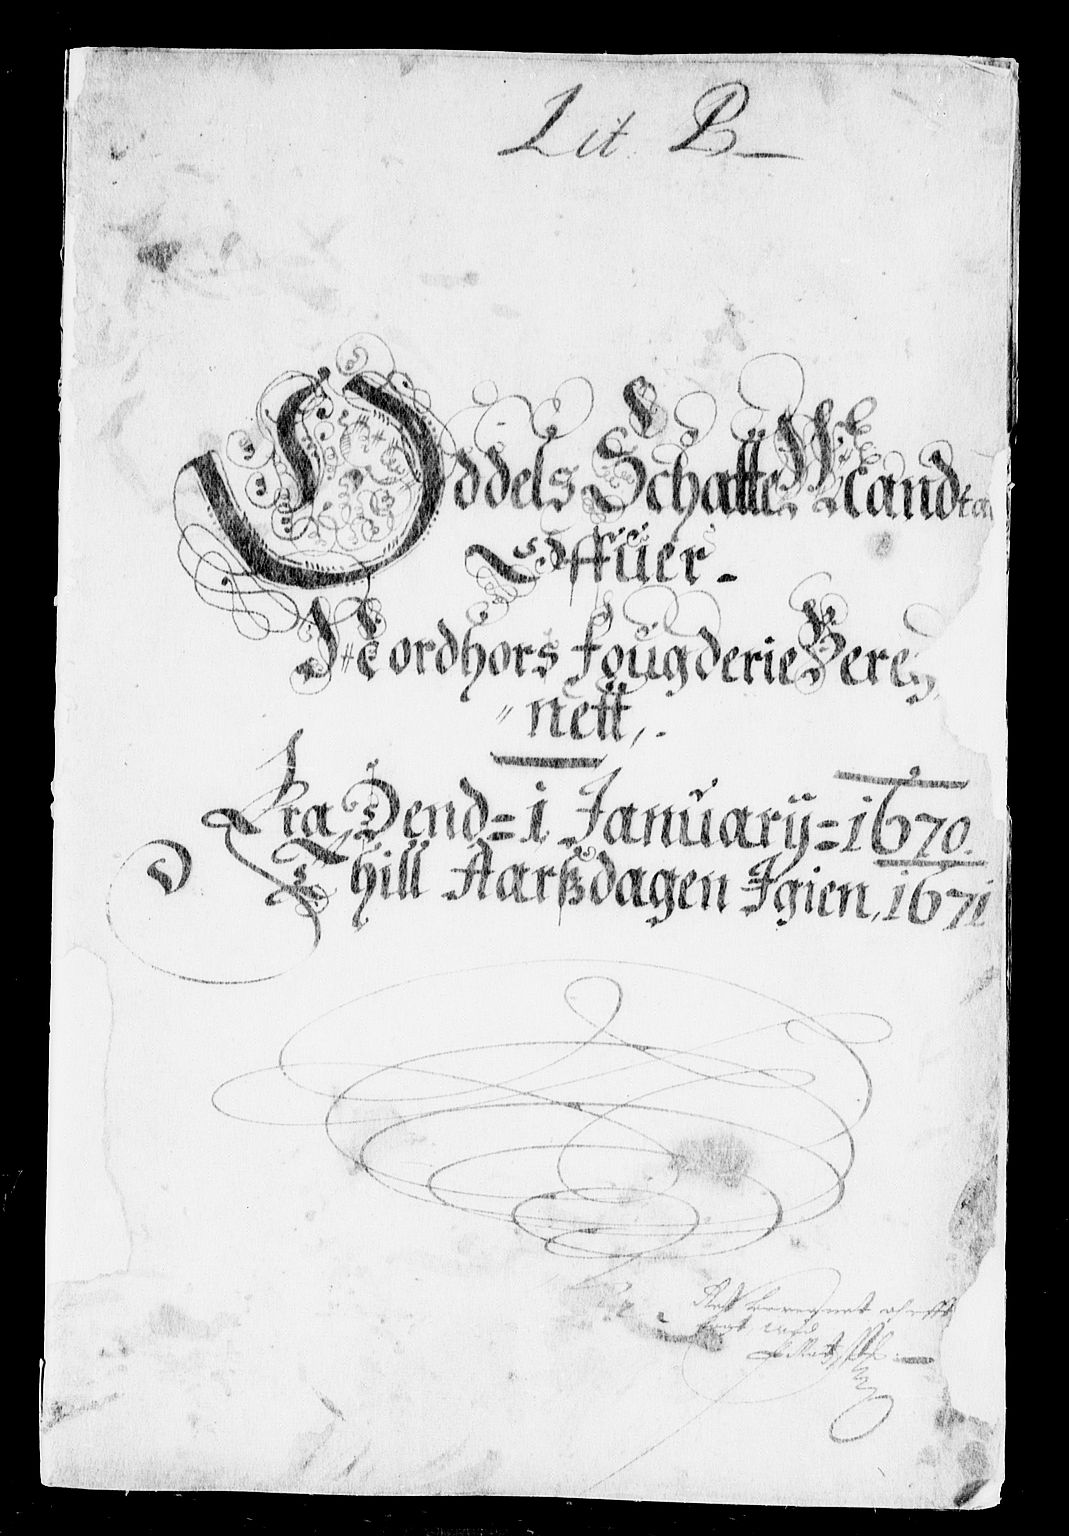 Lit. B
Oddels Schatte Mandta
Offüer
Nordhors fougderie Bereg
nett,
Fra Dend = 1 January = 1670.
Thill Aarsdagen Igien, 1671
Rett beregnet